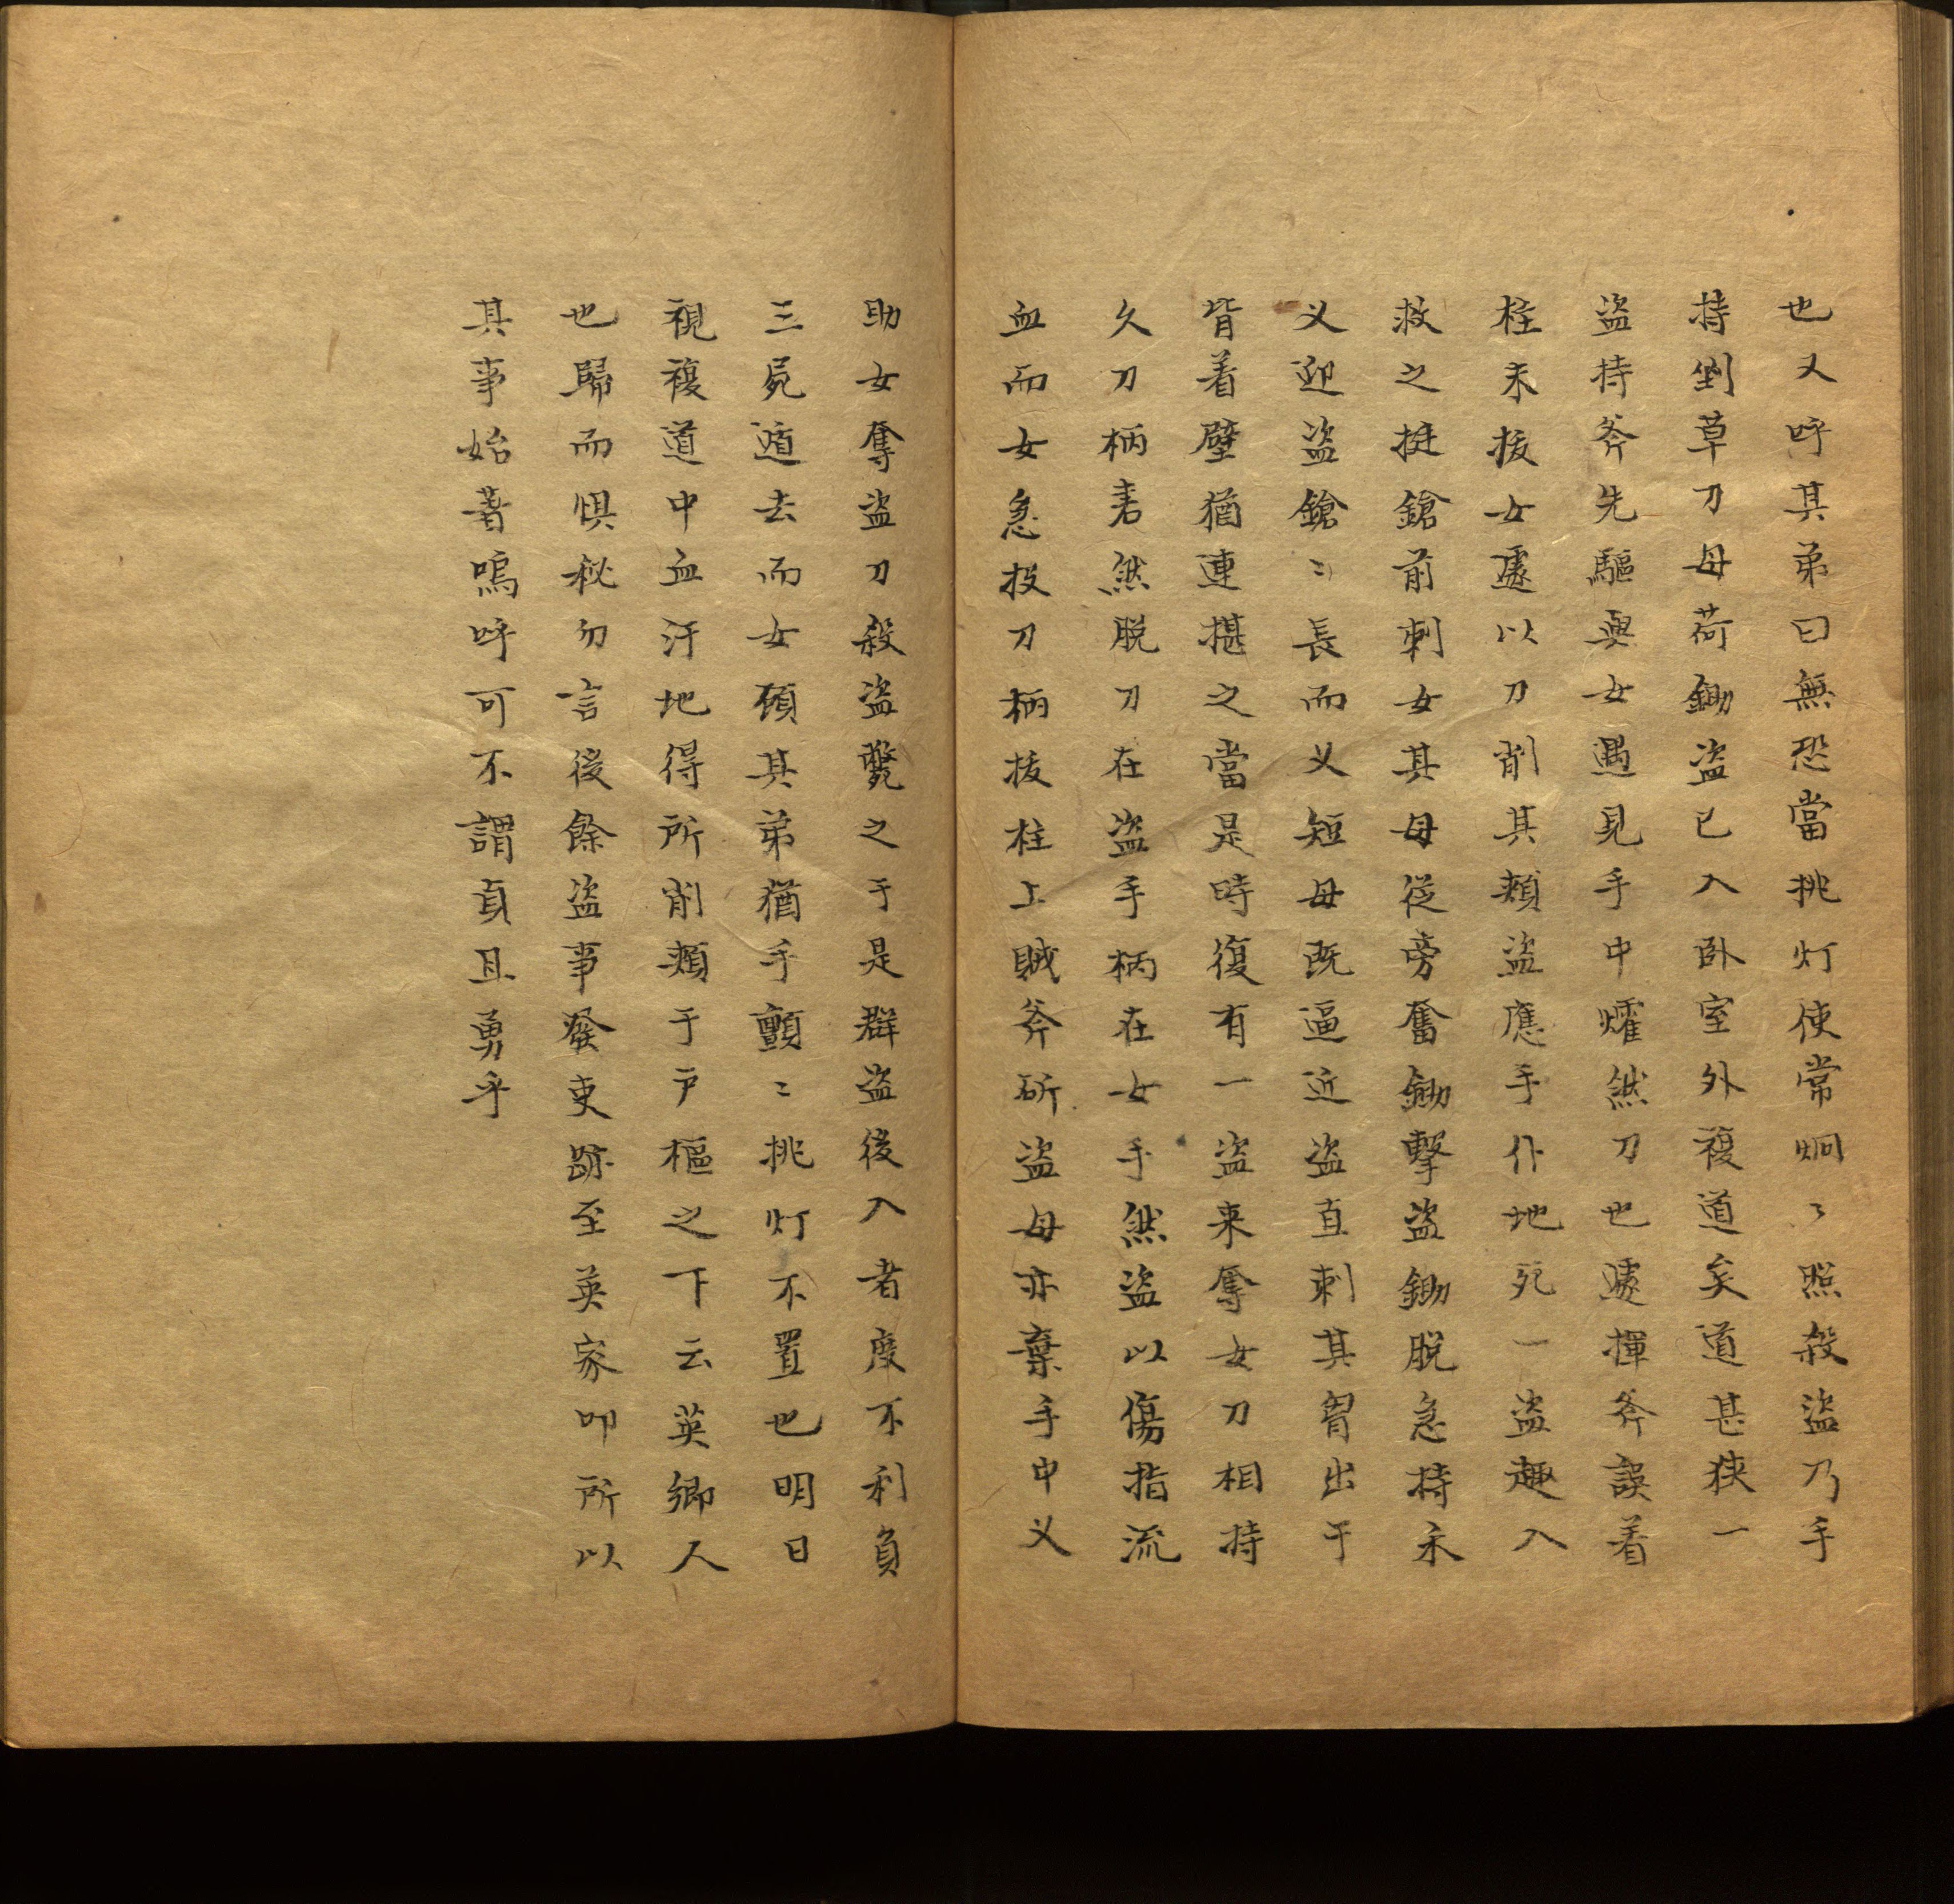 也又呼其弟曰無恐當挑灯使常炯〻照殺盜乃手
持剉草刀母荷鋤盜已入卧室外複道矣道甚狹一
盜持斧先驅與女遇見手中燿然刀也遽揮斧誤着
柱未拔女遽以刀削其頰盜應手仆地死一盜趣入
救之挺鎗前刺女其母從旁奮鋤擊盜鋤脱急持禾
义迎盜鎗〻長而义短母既逼近盜直刺其胷出于
背着壁猶連揕之當是時復有一盜来奪女刀相持
久刀柄砉然脱刀在盜手柄在女手然盜以傷指流
血而女急投刀柄拔柱上賊斧斫盜母亦棄手中义
助女奪盜刀殺盜斃之于是群盜後入者度不利負
三屍遁去而女顧其弟猶手顫〻挑灯不置也明日
視複道中血汙地得所削頰于戶樞之下云英鄉人
也歸而惧秘勿言後餘盜事發吏跡至英家叩所以
其事始著嗚呼可不謂貞且勇乎